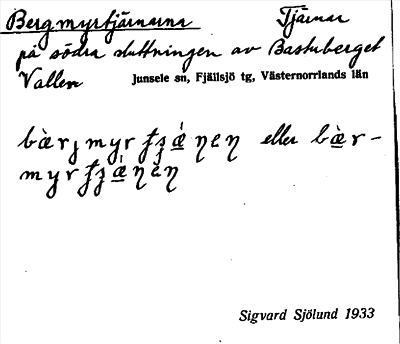 Bergmyrtjärnarna Tjärnar
på södra sluttningen av Bastuberget
Vallen Junsele sn, Fjällsjö tg, Västernorrlands län
eller
Sigvard Sjölund 1933